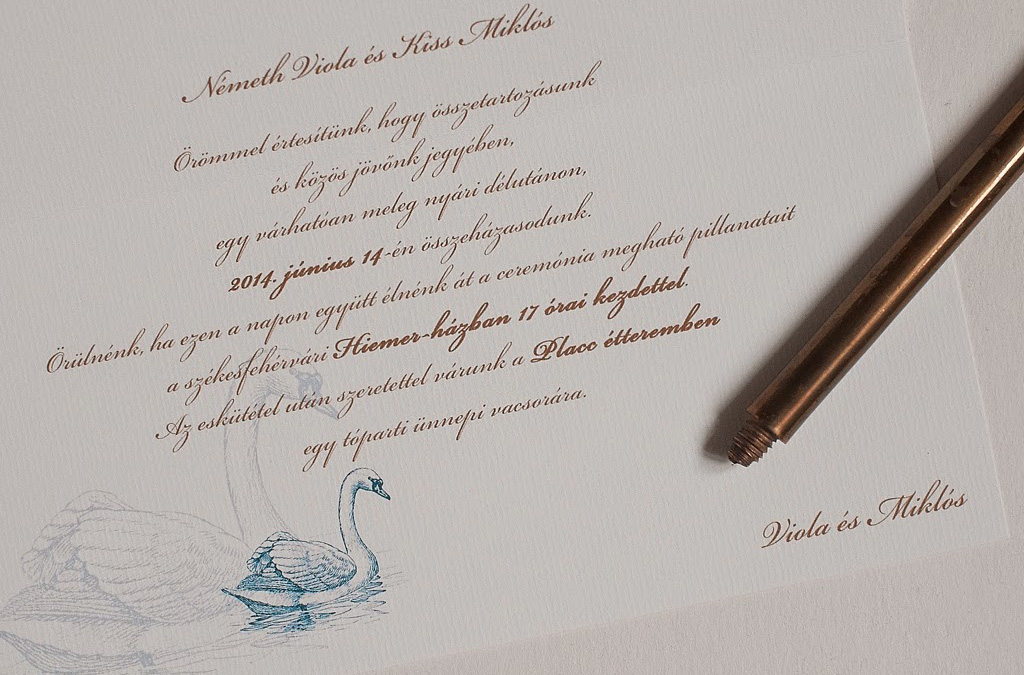 Németh Viola és Kiss Miklós
Örömmel értesítünk, hogy összetartozásunk
és közös jövőnk jegyében,
egy várhatóan meleg nyári délutánon,
2014. június 14-én összeházasodunk.
Örülnénk, ha ezen a napon együtt élnénk át a ceremónia megható pillanatait
a székesfehérvári Hiemer-házban 17 órai kezdettel.
Az eskütétel után szeretettel várunk a Placc étteremben
egy tóparti ünnepi vacsorára.
Viola és Miklós